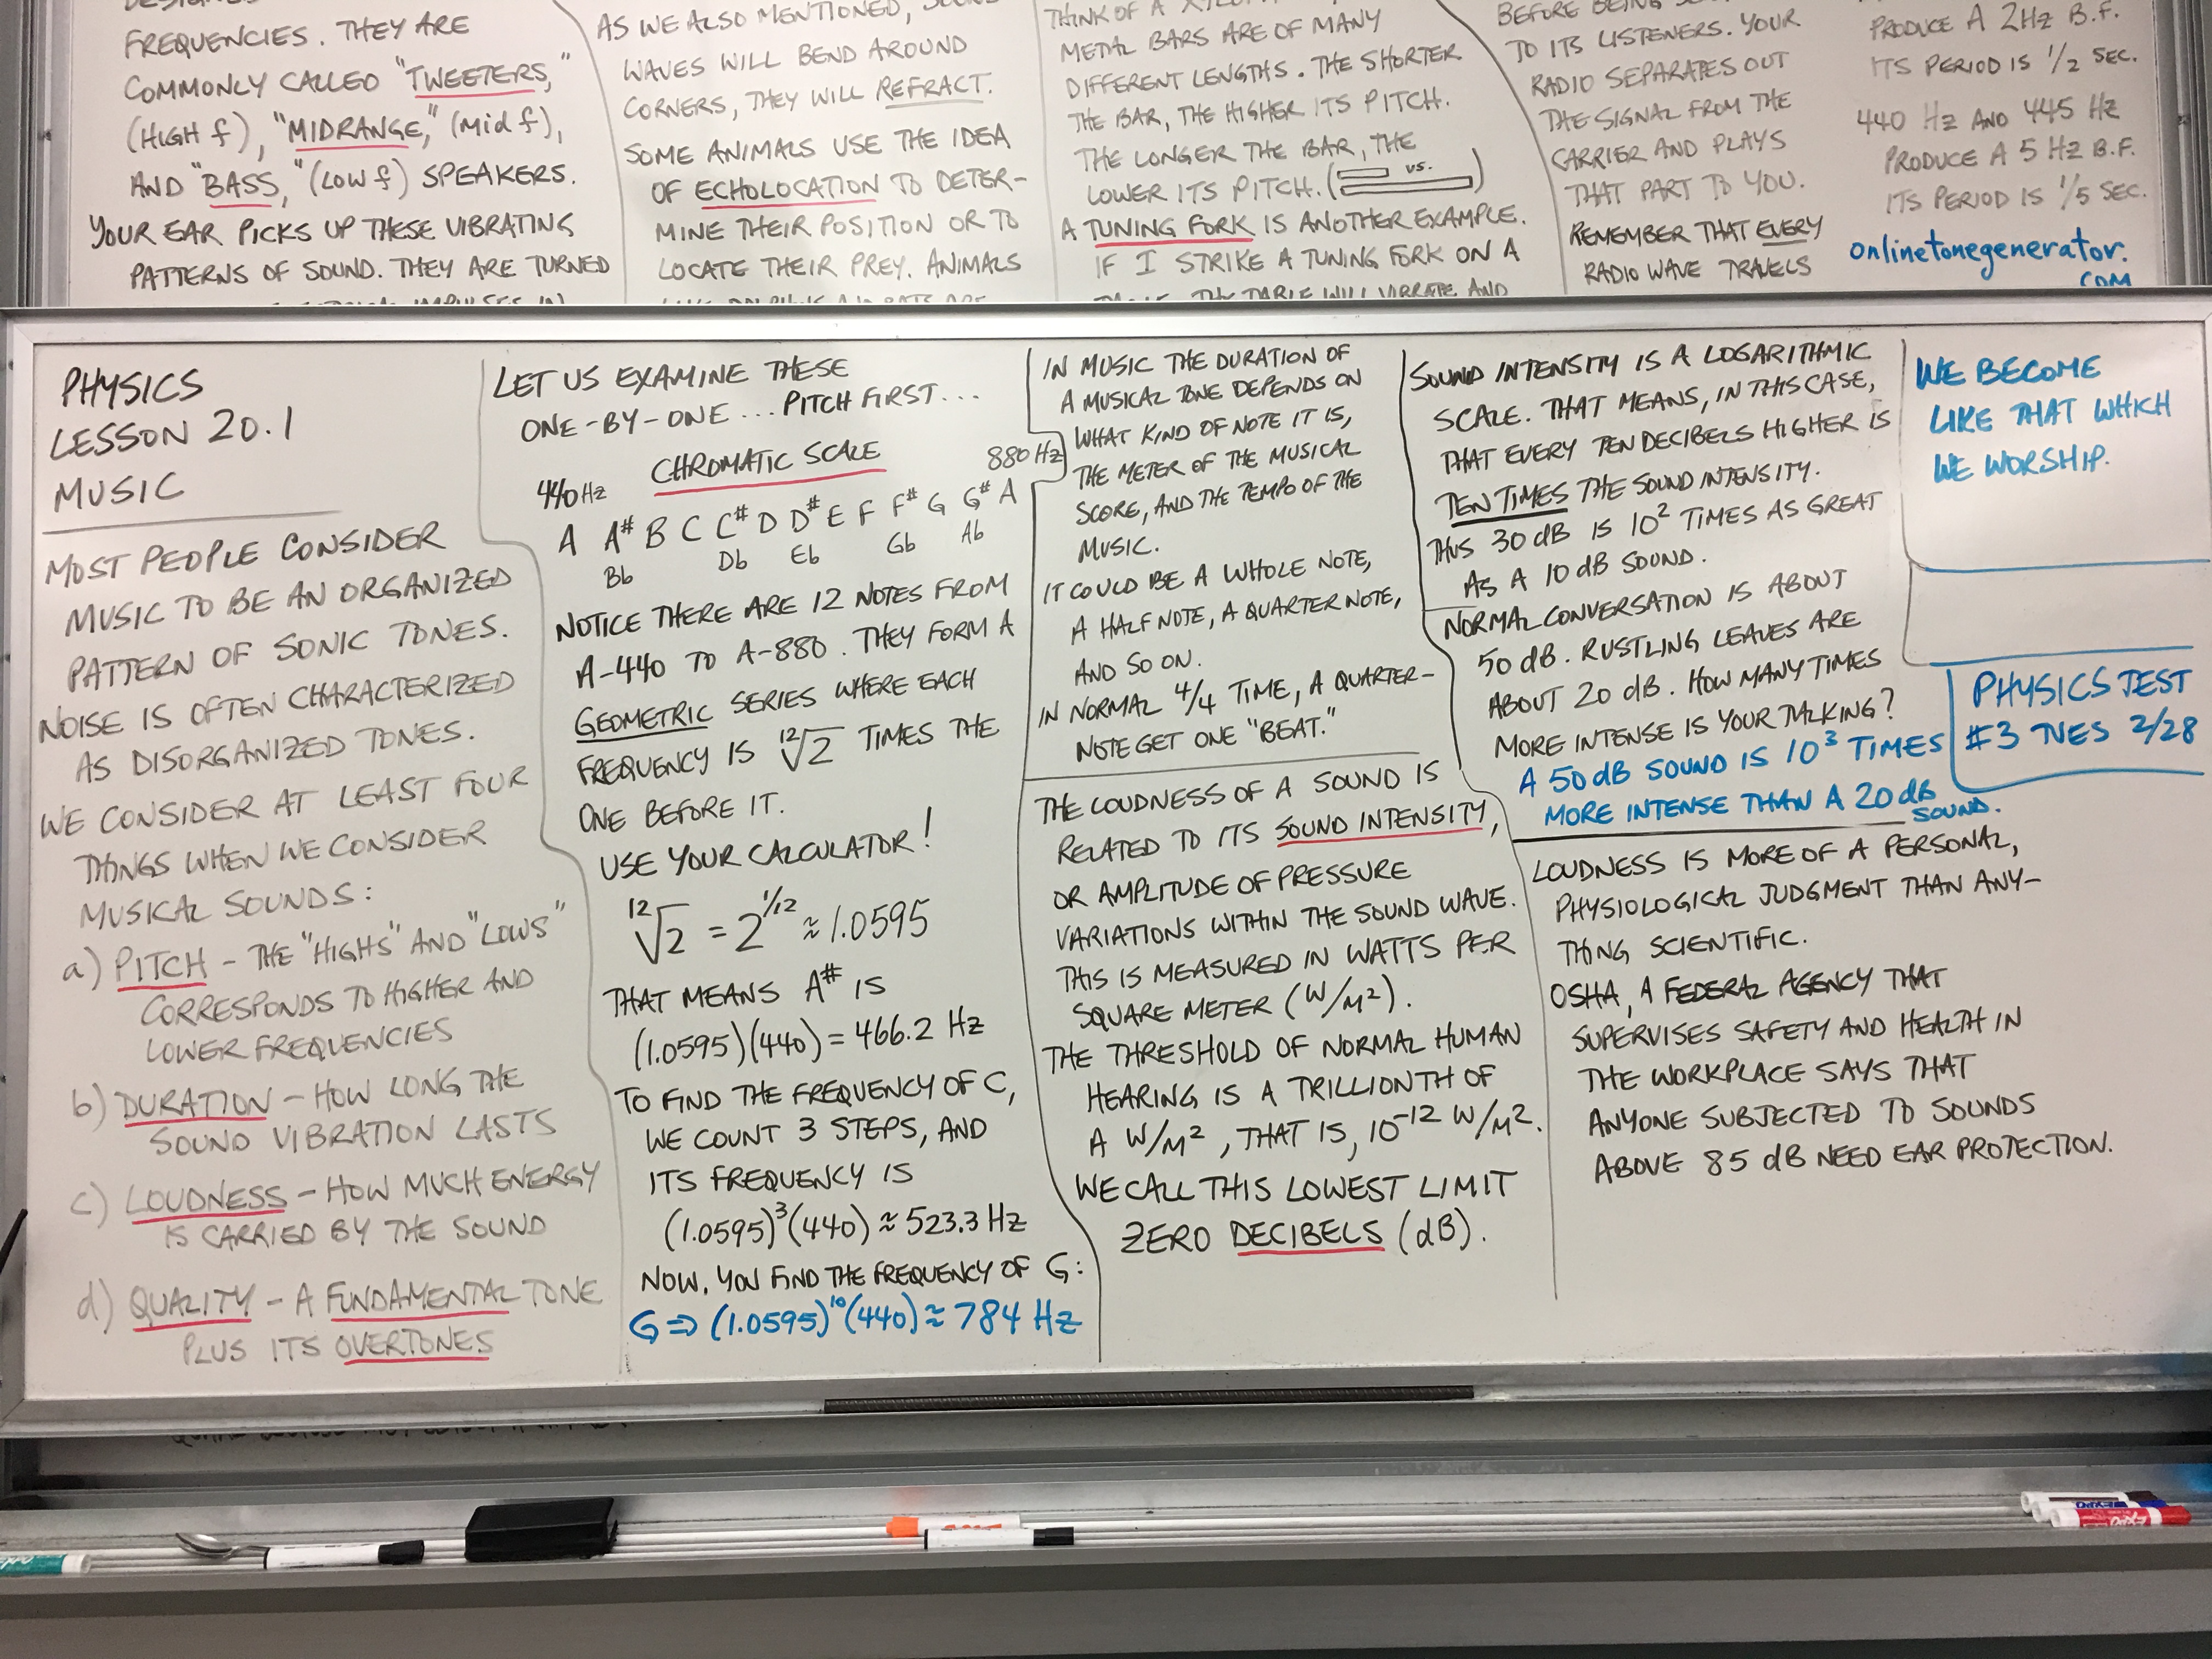 FREQUENCIES. THEY ARE
COMMONLY CALLED "TWEETERS,"
(HIGH f), "MIDRANGE," (MID f),
AND "BASS," (LOW f) SPEAKERS.
YOUR EAR PICKS UP THESE VIBRATING
PATTERNS OF SOUND. THEY ARE TURNED
AS WE ALSO MENTIONED, SOUND
WAVES WILL BEND AROUND
CORNERS, THEY WILL REFRACT.
SOME ANIMALS USE THE IDEA
OF ECHOLOCATION TO DETER-
MINE THEIR POSITION OR TO
LOCATE THEIR PREY. ANIMALS
THINK OF A
METAL BARS ARE OF MANY
DIFFERENT LENGTHS. THE SHORTER
THE BAR, THE HIGHER ITS PITCH.
THE LONGER THE BAR, THE
LOWER ITS PITCH. ( vs. )
A TUNING FORK IS ANOTHER EXAMPLE.
IF I STRIKE A TUNING FORK ON A
THE TABLE WILL VIBRATE AND
BEFORE BEING
TO ITS LISTENERS. YOUR
RADIO SEPARATES OUT
THE SIGNAL FROM THE
CARRIER AND PLAYS
THAT PART TO YOU.
REMEMBER THAT EVERY
RADIO WAVE TRAVELS
PRODUCE A 2Hz B.F.
ITS PERIOD IS 1/2 SEC.
440 Hz AND 445 Hz
PRODUCE A 5 Hz B.F.
ITS PERIOD IS 1/5 SEC.
onlinetonegenerator.
COM
PHYSICS
LESSON 20.1
MUSIC
MOST PEOPLE CONSIDER
MUSIC TO BE AN ORGANIZED
PATTERN OF SONIC TONES.
NOISE IS OFTEN CHARACTERIZED
AS DISORGANIZED TONES.
WE CONSIDER AT LEAST FOUR
THINGS WHEN WE CONSIDER
MUSICAL SOUNDS:
a) PITCH - THE "HIGHS" AND "LOWS"
CORRESPONDS TO HIGHER AND
LOWER FREQUENCIES
b) DURATION - HOW LONG THE
SOUND VIBRATION LASTS
c) LOUDNESS - HOW MUCH ENERGY
IS CARRIED BY THE SOUND
d) QUALITY - A FUNDAMENTAL TONE
PLUS ITS OVERTONES
LET US EXAMINE THESE
ONE-BY-ONE ... PITCH FIRST...
CHROMATIC SCALE
440 Hz 880 Hz
A A# B C C# D D# E F F# G G# A
Bb Db Eb Gb Ab
NOTICE THERE ARE 12 NOTES FROM
A-440 TO A-880. THEY FORM A
GEOMETRIC SERIES WHERE EACH
FREQUENCY IS ¹²√2 TIMES THE
ONE BEFORE IT.
USE YOUR CALCULATOR!
¹²√2 = 2^1/12 ≈ 1.0595
THAT MEANS A# IS
(1.0595)(440) = 466.2 Hz
TO FIND THE FREQUENCY OF C,
WE COUNT 3 STEPS, AND
ITS FREQUENCY IS
(1.0595)³(440) ≈ 523.3 Hz
NOW, YOU FIND THE FREQUENCY OF G:
G ⇒ (1.0595)¹⁰(440) ≈ 784 Hz
IN MUSIC THE DURATION OF
A MUSICAL TONE DEPENDS ON
WHAT KIND OF NOTE IT IS,
THE METER OF THE MUSICAL
SCORE, AND THE TEMPO OF THE
MUSIC.
IT COULD BE A WHOLE NOTE,
A HALF NOTE, A QUARTER NOTE,
AND SO ON.
IN NORMAL 4/4 TIME, A QUARTER-
NOTE GET ONE "BEAT."
THE LOUDNESS OF A SOUND IS
RELATED TO ITS SOUND INTENSITY,
OR AMPLITUDE OF PRESSURE
VARIATIONS WITHIN THE SOUND WAVE.
THIS IS MEASURED IN WATTS PER
SQUARE METER (W/M²).
THE THRESHOLD OF NORMAL HUMAN
HEARING IS A TRILLIONTH OF
A W/M², THAT IS, 10⁻¹² W/M².
WE CALL THIS LOWEST LIMIT
ZERO DECIBELS (dB).
SOUND INTENSITY IS A LOGARITHMIC
SCALE. THAT MEANS, IN THIS CASE,
THAT EVERY TEN DECIBELS HIGHER IS
TEN TIMES THE SOUND INTENSITY.
THUS 30 dB IS 10² TIMES AS GREAT
AS A 10 dB SOUND.
NORMAL CONVERSATION IS ABOUT
50 dB. RUSTLING LEAVES ARE
ABOUT 20 dB. HOW MANY TIMES
MORE INTENSE IS YOUR TALKING?
A 50 dB SOUND IS 10³ TIMES
MORE INTENSE THAN A 20 dB
SOUND.
LOUDNESS IS MORE OF A PERSONAL,
PHYSIOLOGICAL JUDGMENT THAN ANY-
THING SCIENTIFIC.
OSHA, A FEDERAL AGENCY THAT
SUPERVISES SAFETY AND HEALTH IN
THE WORKPLACE SAYS THAT
ANYONE SUBJECTED TO SOUNDS
ABOVE 85 dB NEED EAR PROTECTION.
WE BECOME
LIKE THAT WHICH
WE WORSHIP.
PHYSICS TEST
#3 TUES 2/28
EXPO